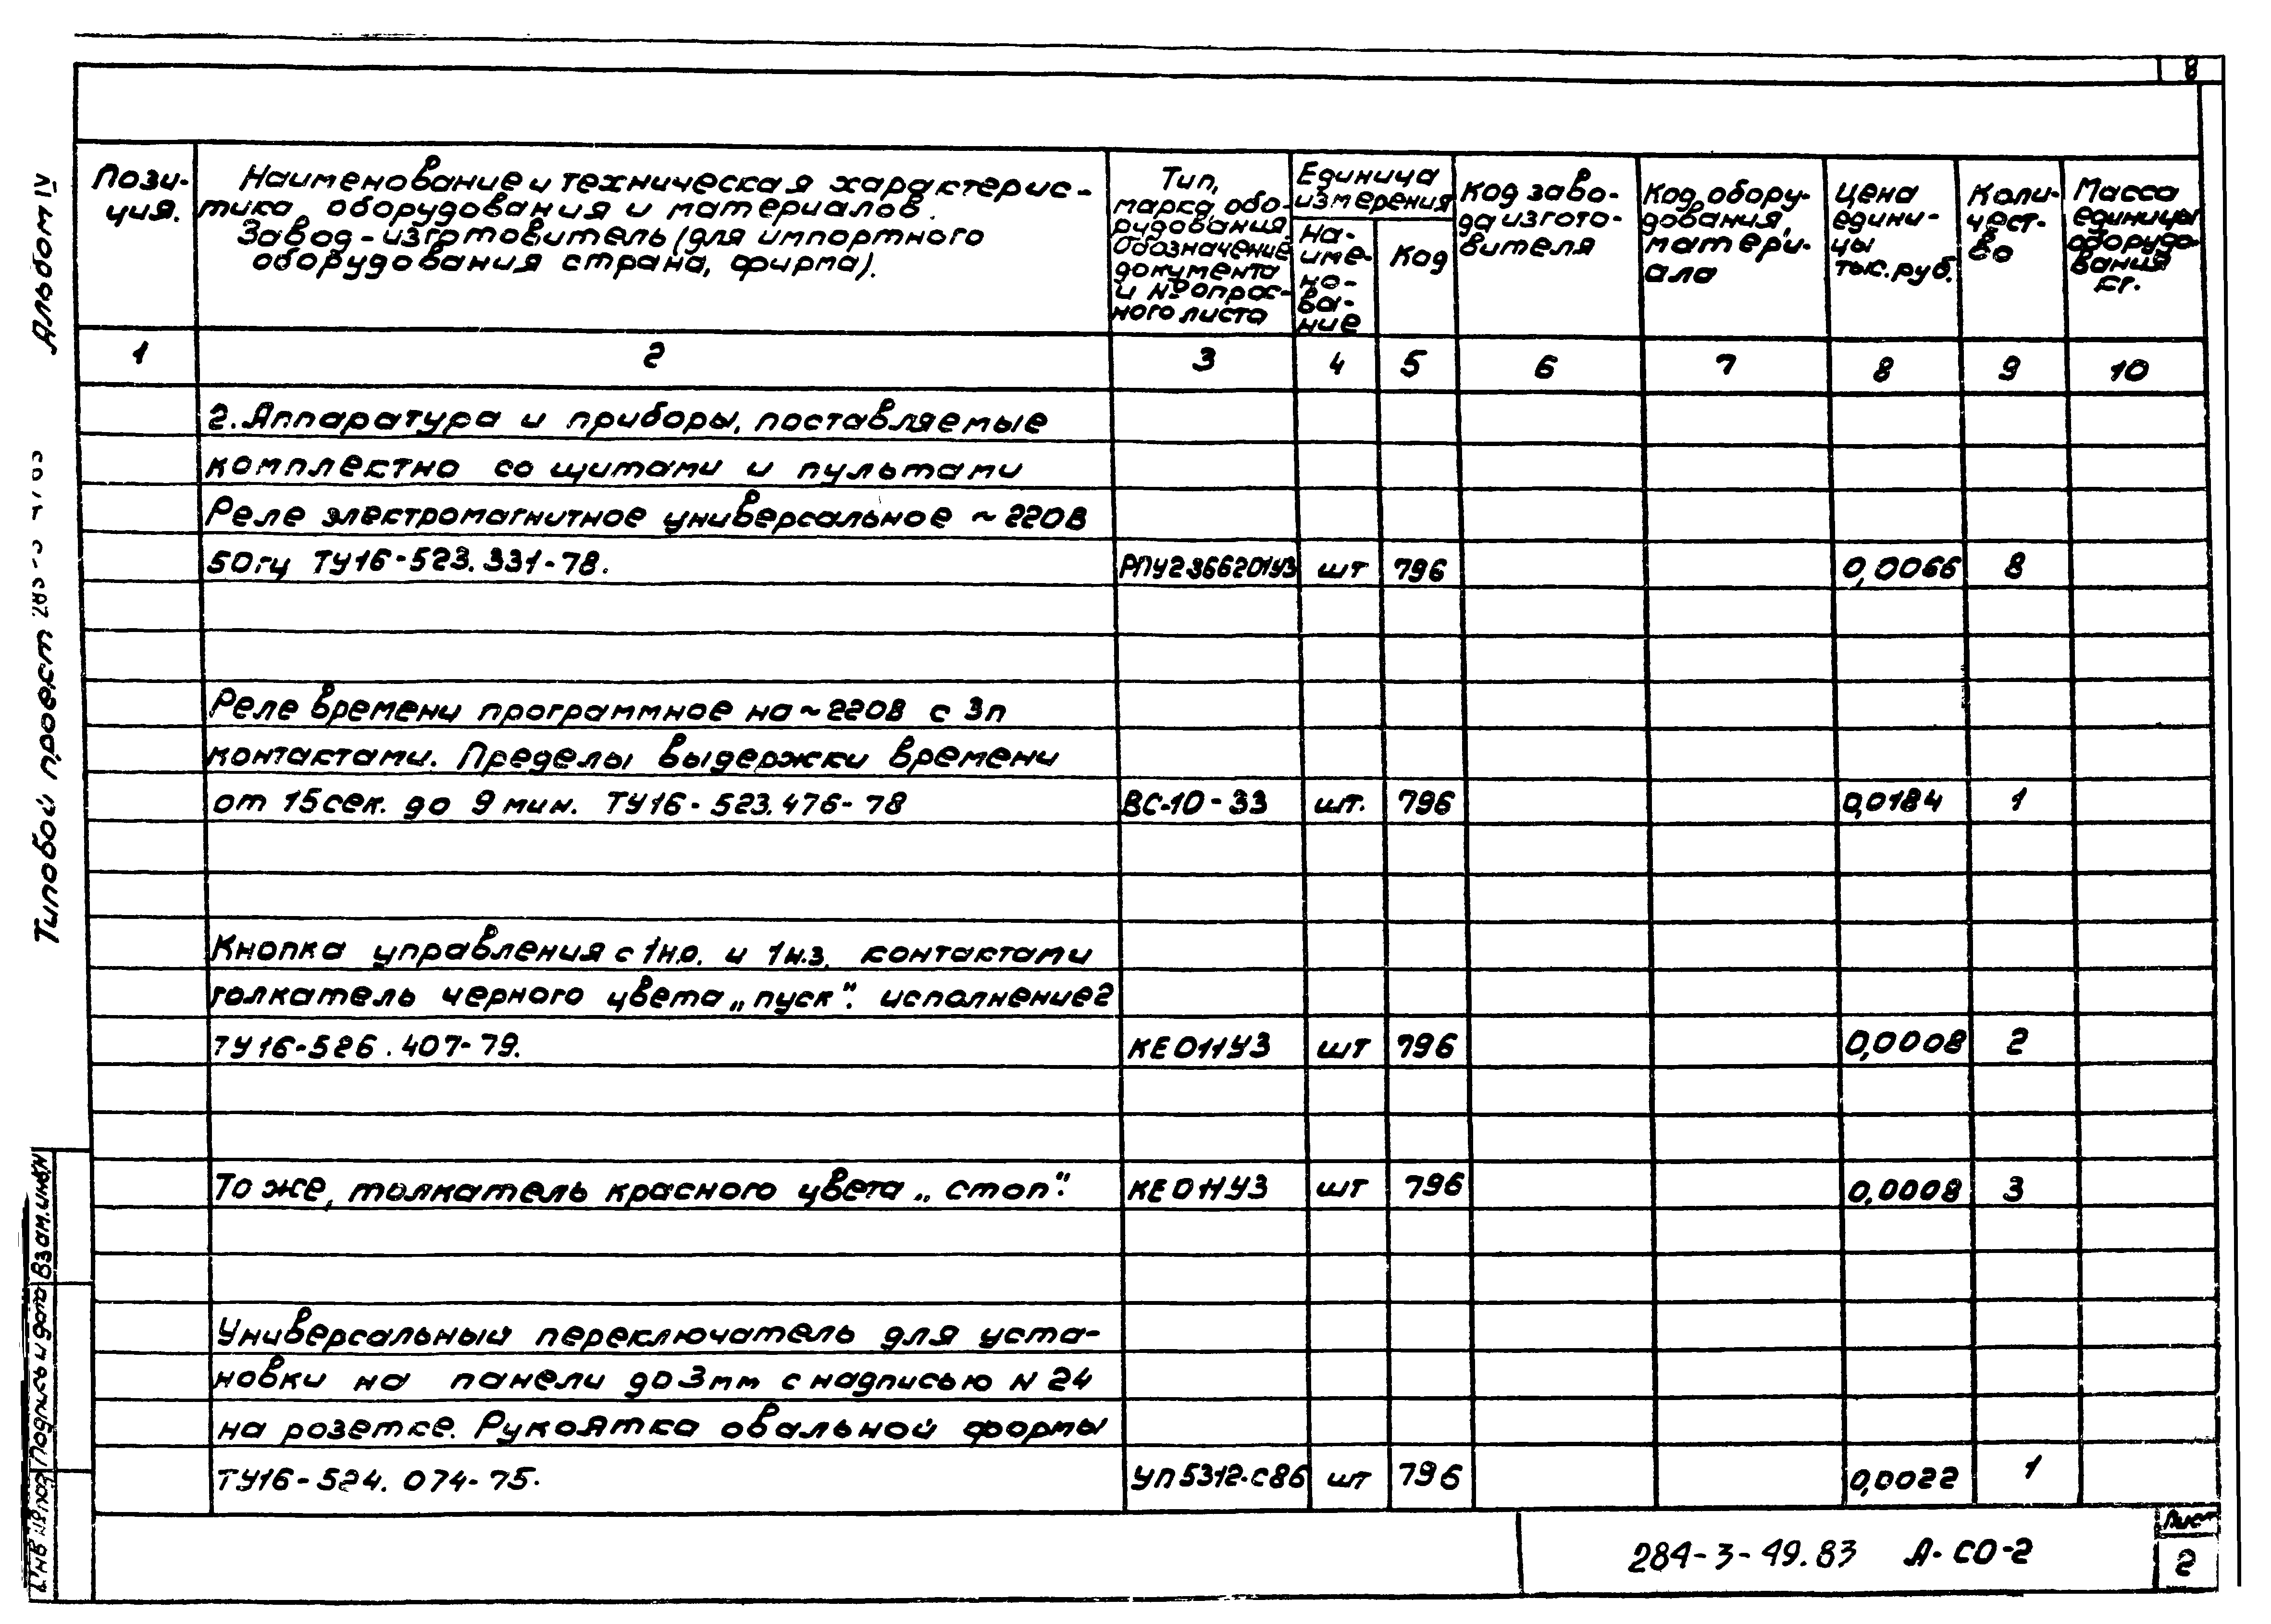 8
Альбом IV
Типовой проект 284-3-49.83
Пози-
ция.
Наименование и техническая характерис-
тика оборудования и материалов.
Завод-изготовитель (для импортного
оборудования страна, фирма).
Тип,
марка обо-
рудования.
Обозначение
документа
и № опрос-
ного листа
Единица
измерения
На-
име-
но-
ва-
ние
Код
Код заво-
да изгото-
вителя
Код обору-
дования,
матери-
ала
Цена
едини-
цы
тыс. руб.
Коли-
чест-
во
Масса
единицы
оборудо-
вания
кг.
1 2 3 4 5 6 7 8 9 10
2. Аппаратура и приборы, поставляемые
комплектно со щитами и пультами
Реле электромагнитное универсальное ~220В
50гц ТУ16-523.331-78. РПУ2366201У3 шт 796 0,0066 8
Реле времени программное на ~220В с 3п
контактами. Пределы выдержки времени
от 15сек. до 9 мин. ТУ16-523.476-78 ВС-10-33 шт. 796 0,0184 1
Кнопка управления с 1н.о. и 1н.з. контактами
толкатель черного цвета „пуск". исполнение 2
ТУ16-526.407-79. КЕ011У3 шт 796 0,0008 2
То же, толкатель красного цвета „стоп". КЕ011У3 шт 796 0,0008 3
Универсальный переключатель для уста-
новки на панели до 3мм с надписью N 24
на розетке. Рукоятка овальной формы
ТУ16-524.074-75. УП5312-С86 шт 796 0,0022 1
Инв № подл Подпись и дата Взам. инв N
284-3-49.83 А-СО-2
Лист
2